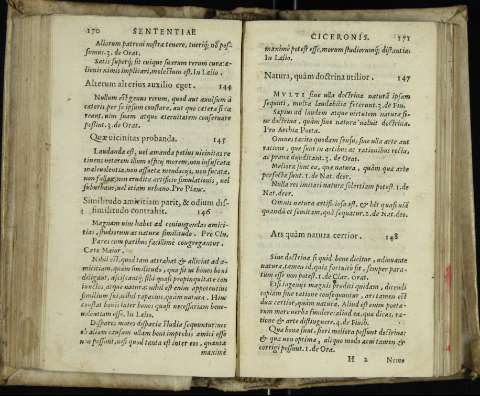 170 SENTENTIAE
Aliorum patroni nostra tenere, tueriq; nō pos-
sumus. 3. de Orat.
Satis superq; sit cuique suarum rerum cura: a-
lienis nimis implicari, molestum est. In Lælio.
Alterum alterius auxilio eget. 144
Nullum est genus rerum, quod aut auulsum à
cæteris, per se ipsum constare, aut quo cætera si ca
reant, vim suam atque æternitatem conseruare
possint. 3. de Orat.
Quæ uicinitas probanda. 145
Laudanda est, uel amanda potius uicinitas re
tinens ueterem illum officij morem, non infuscata
maleuolentia, non assueta mendacijs, non fucata,
non fallax, non erudita artificio simulationis, uel
suburbano, uel etiam urbano. Pro Planc.
Similitudo amicitiam parit, & odium dis-
similitudo contrahit. 146
Magnam uim habet ad coniungendas amici-
tias, studiorum ac naturæ similitudo. Pro Clu.
Pares cum paribus facillimè congregantur.
Cato Maior.
Nihil est, quod tam attrahat & alliciat ad a-
micitiam, quàm similitudo, quæ sit ut bonos boni
diligant, asciscantq; sibi quasi propinquitate con
iunctos, atque natura: nihil est enim appetentius
similium sui, nihil rapacius, quàm natura. Hinc
constat bonis inter bonos quasi necessariam bene-
uolentiam esse. In Lælio.
Dispares mores disparia studia sequuntur: nec
ob aliam causam ullam boni improbis amici esse
non possunt, nisi quòd tanta est inter eos, quanta
maximè
CICERONIS. 171
maximè potest esse, morum studiorumq; distantia:
In Lælio.
Natura, quàm doctrina utilior. 147
MVLTI sine ulla doctrina naturā ipsam
sequuti, multa laudabilia fecerunt. 3. de Fin.
Sæpius ad laudem atque uirtutem natura si-
ne doctrina, quàm sine natura ualuit doctrina.
Pro Archia Poeta.
Omnes tacito quodam sensu, sine ulla arte aut
ratione, quæ sint in artibus ac rationibus recta,
ac praua dijudicant. 3. de Orat.
Meliora sunt ea, quæ natura, quàm quæ arte
perfecta sunt. 1. de Nat. deor.
Nulla res imitari naturæ solertiam potest. 1. de
Nat. deor.
Omnis natura artificiosa est, & hāc quasi uiā
quandā et semitam, quā sequatur. 2. de Nat. deo.
Ars quàm natura certior. 148
Siue doctrina si quid bene dicitur, adiuuante
natura, tamen id, quia fortuitò fit, semper para-
tum esse non potest. 1. de Clar. Orat.
Etsi ingenijs magnis præditi quidam, dicendi
copiam sine ratione consequuntur, ars tamen est
dux certior, quàm natura. Aliud est enim poëta-
rum more uerba fundere: aliud ea, quæ dicas, ra-
tione & arte distinguere. 4. de Finib.
Quæ bona sunt, fieri meliora possunt doctrina:
& quæ non optima, aliquo modo acui tamen &
corrigi possunt. 1. de Ora.
H 2 Nemo